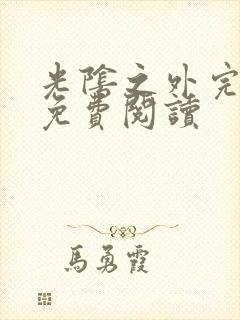 光陰之外完
免費閱讀
馬勇霞